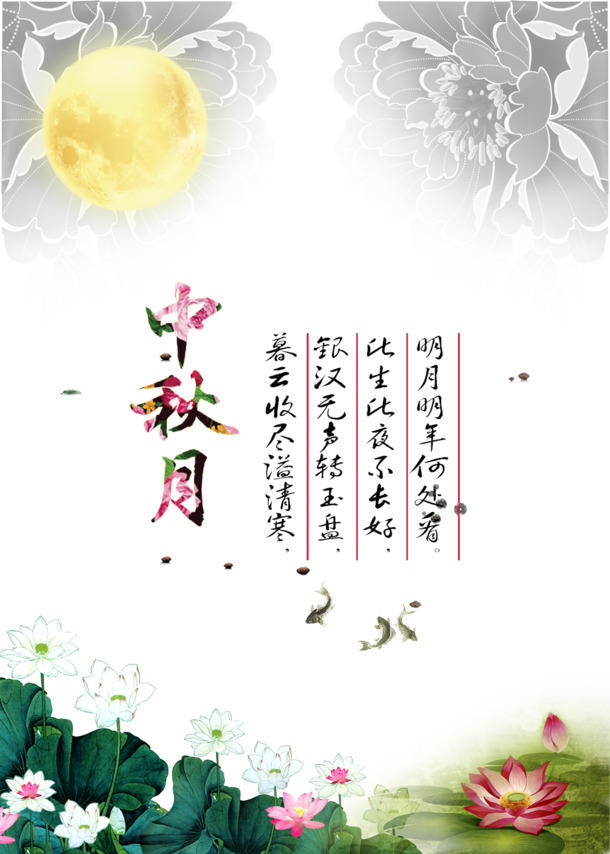 中秋月
暮云收尽溢清寒，
银汉无声转玉盘，
此生此夜不长好，
明月明年何处看。